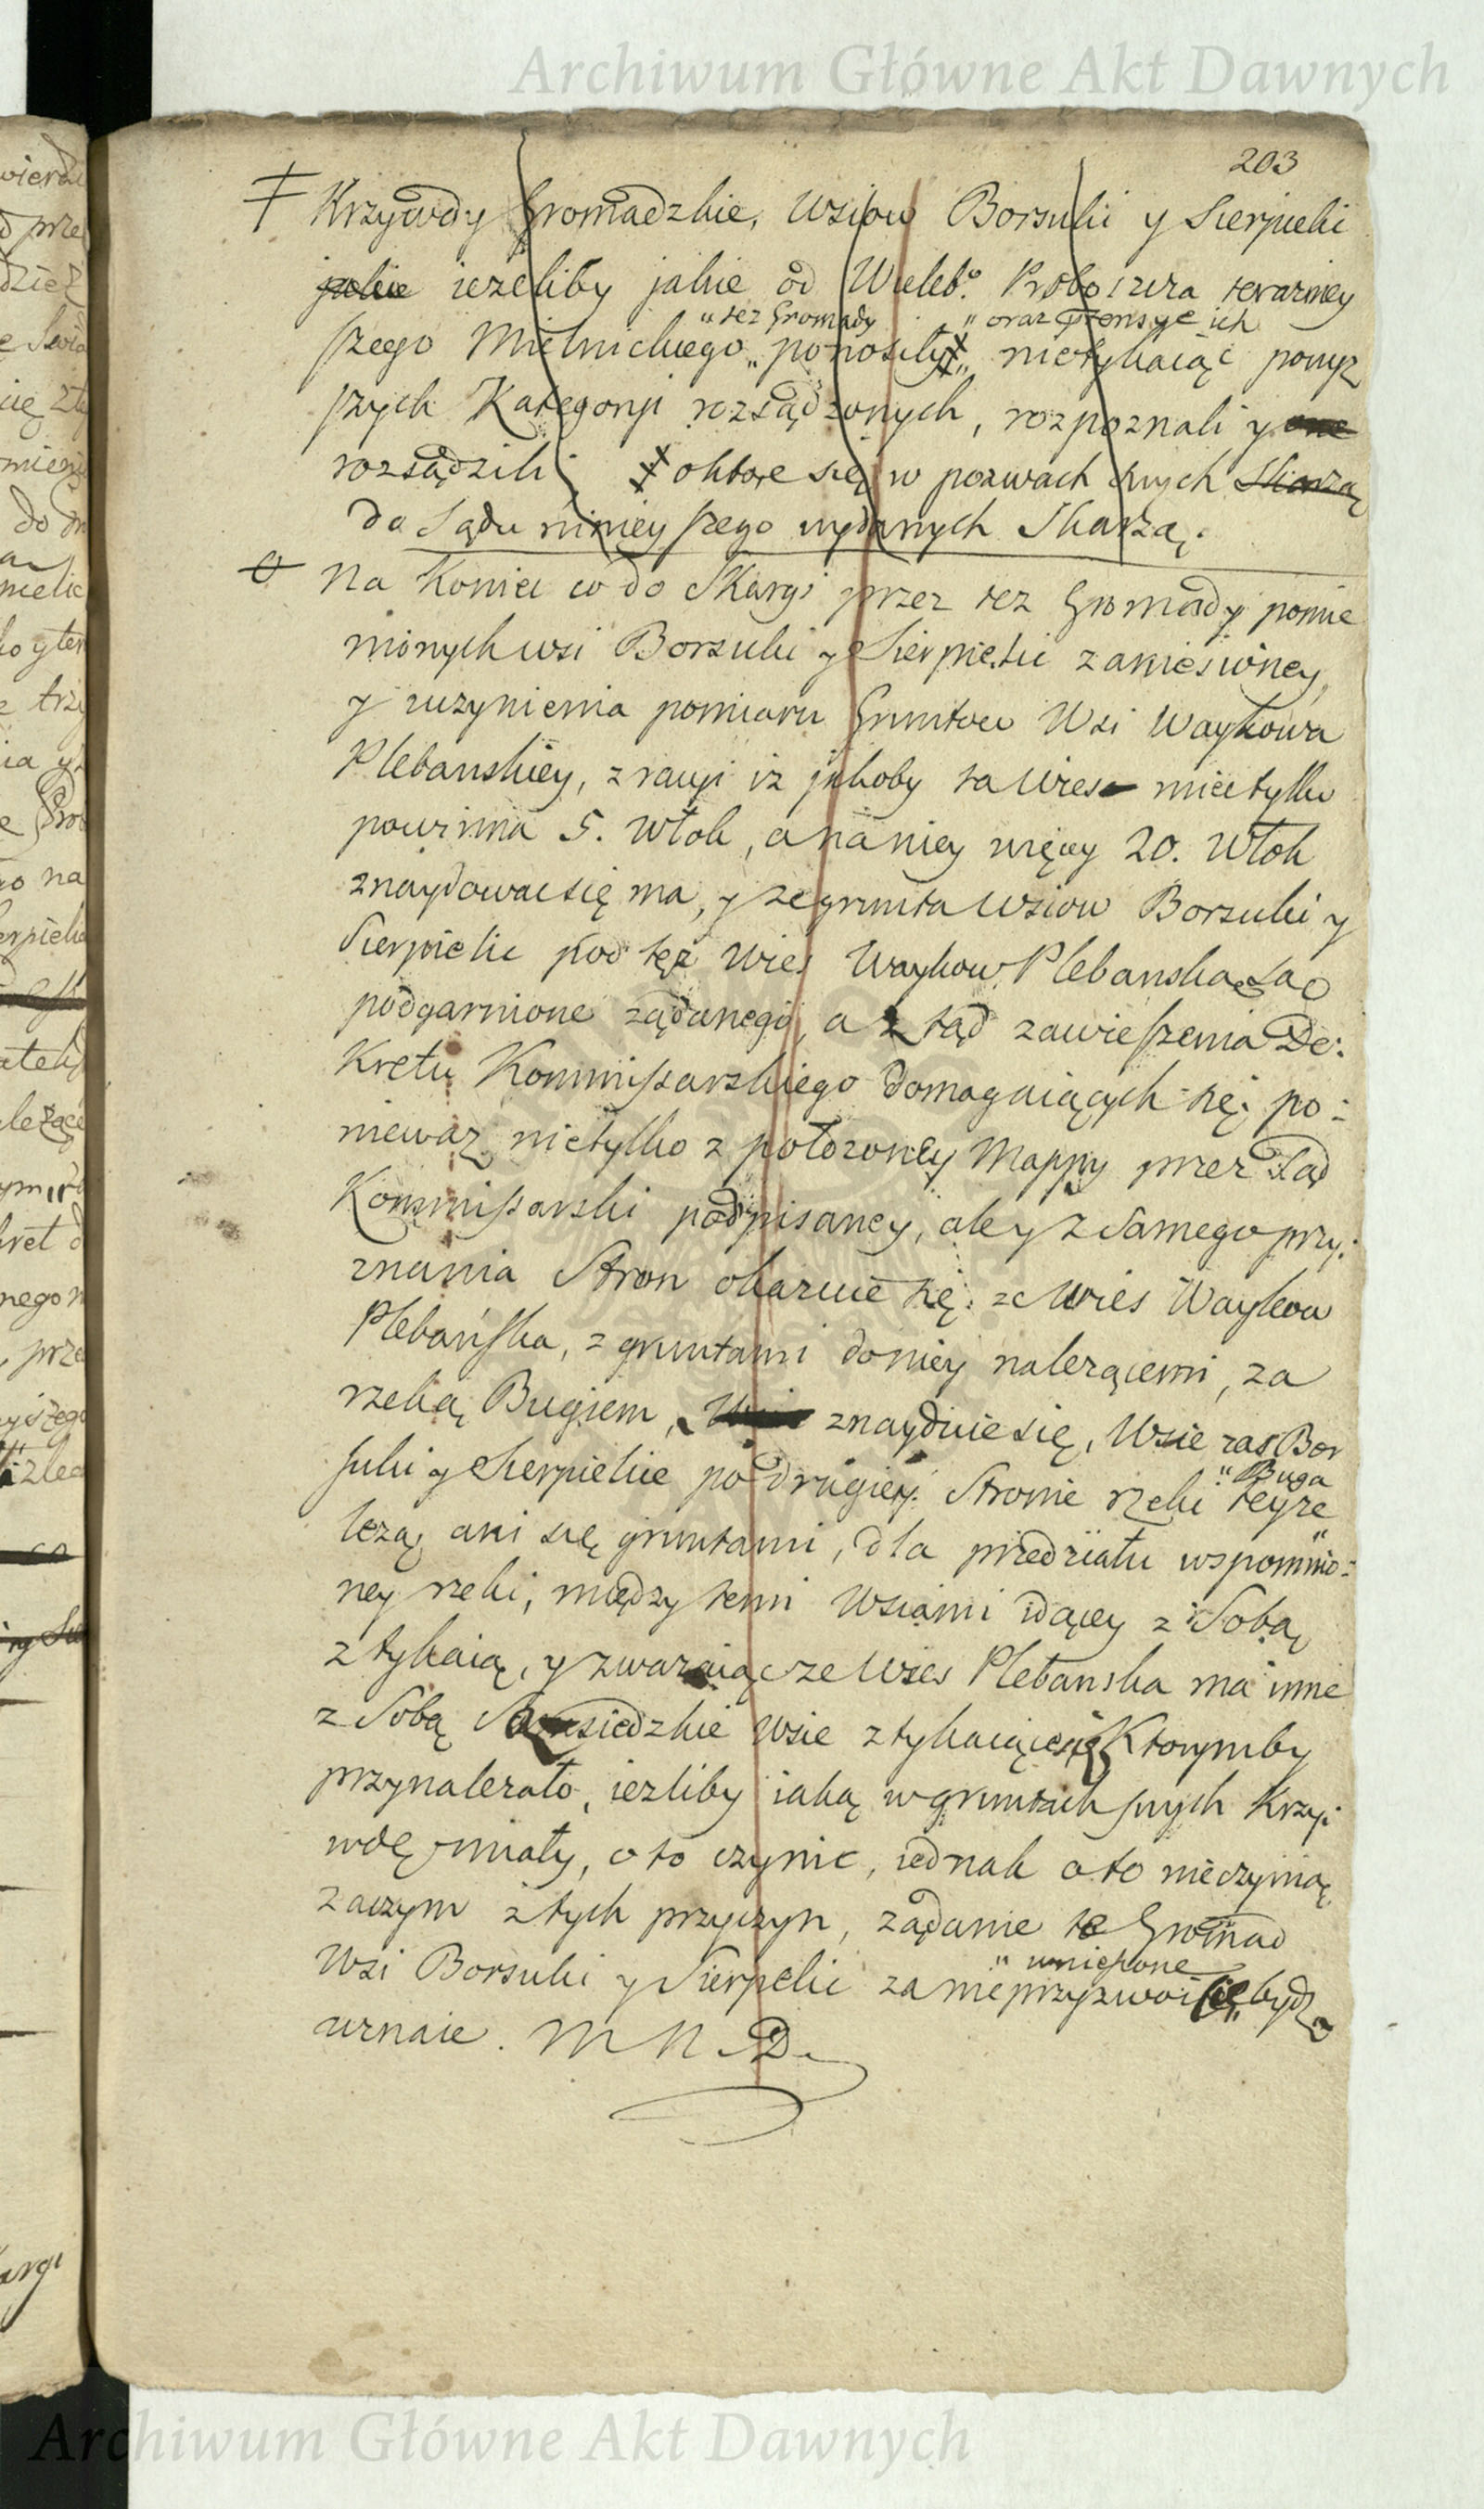 Archiwum Główne Akt Dawnych
203
Krzywdy Gromadzkie, Wsiow Borsuki y Sierpielki
jakie iezeliby jakie od Wieleb.º Proboszcza terazniey
"tez Gromady " oraz pretensye ich
szego Mielnickiego „ ponosiły „ nietykaiąc powyz
szych Kategoryi rozsądzonych, rozpoznali y one
rozsądzili; o ktore się w pozwach swych Skarzą
do Sądu ninieyszego wydanych Skarzą.
Na Koniec co do Skargi przez tez Gromady pomie
nionych wsi Borsuki y Sierpielic zaniesioney,
y uczynienia pomiaru Gruntow Wsi Waykowa
Plebanskiey, z racyi iz jakoby ta wies miec tylko
powinna 5. Włok, a na niey więcey 20. Włok
znaydowac się ma, y ze grunta Wsiow Borsuki y
Sierpielic pod tęz Wies Waykow Plebanska są
podgarnione ządanego, a ztąd zawieszenia De:
Kretu Kommissarskiego domagaiących się; po:
niewaz nietylko z połozoney Mappy przez Sąd
Kommissarski podpisaney, ale y z samego przy:
znania Stron okazuie się: ze Wies Waykow
Plebańska, z gruntami do niey nalezącemi, za
rzeką Bugiem, znayduie się, Wsie zas Bor
suki y Sierpielice po drugiey Stronie rzeki teyze
" Buga
lezą, ani się gruntami, dla przedziału wspomnio:
ney rzeki, między temi Wsiami idącey z Sobą
ztykaią, y zwazaiąc ze Wies Plebanska ma inne
z Sobą Sąsiedzkie Wsie ztykaiące się Ktorymby
przynalezało, iezliby iaką w gruntach swych Krzy:
wdę miały, o to czynic, iednak o to nieczynią
zaczym z tych przyczyn, ządanie te Gromad
" wniesione
Wsi Borsuki y Sierpelic za nieprzyzwoicie bydz
uznaie. M N D.
Archiwum Główne Akt Dawnych